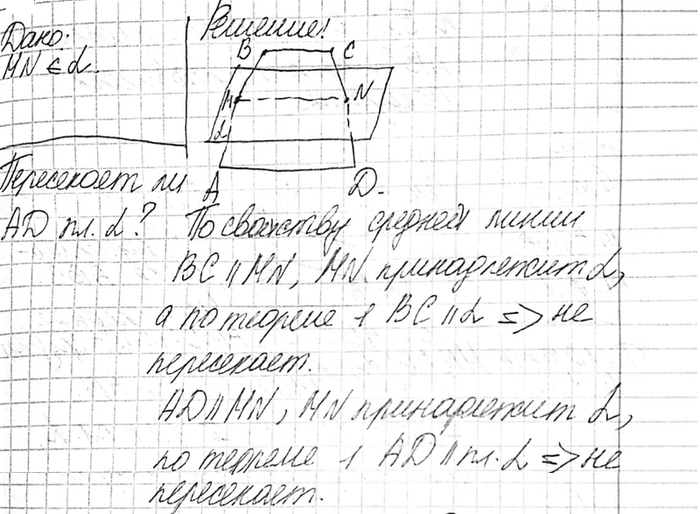 Дано:
MN ∈ α.
Пересекает ли
AD пл. α?
Решение:
B C
M N
α
A D.
По свойству средней линии
BC || MN, MN принадлежит α,
а по теореме 1 BC || α => не
пересекает.
AD || MN, MN принадлежит α,
по теореме 1 AD || пл. α => не
пересекает.